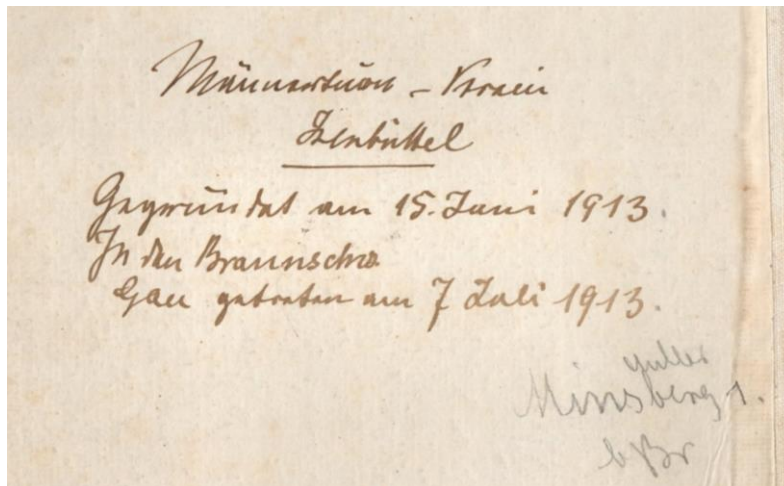 Männerturn - Verein
Isenbüttel
Gegründet am 15. Juni 1913.
In den Braunschw
Gau getreten am 7 Juli 1913.
Minsberg 1.